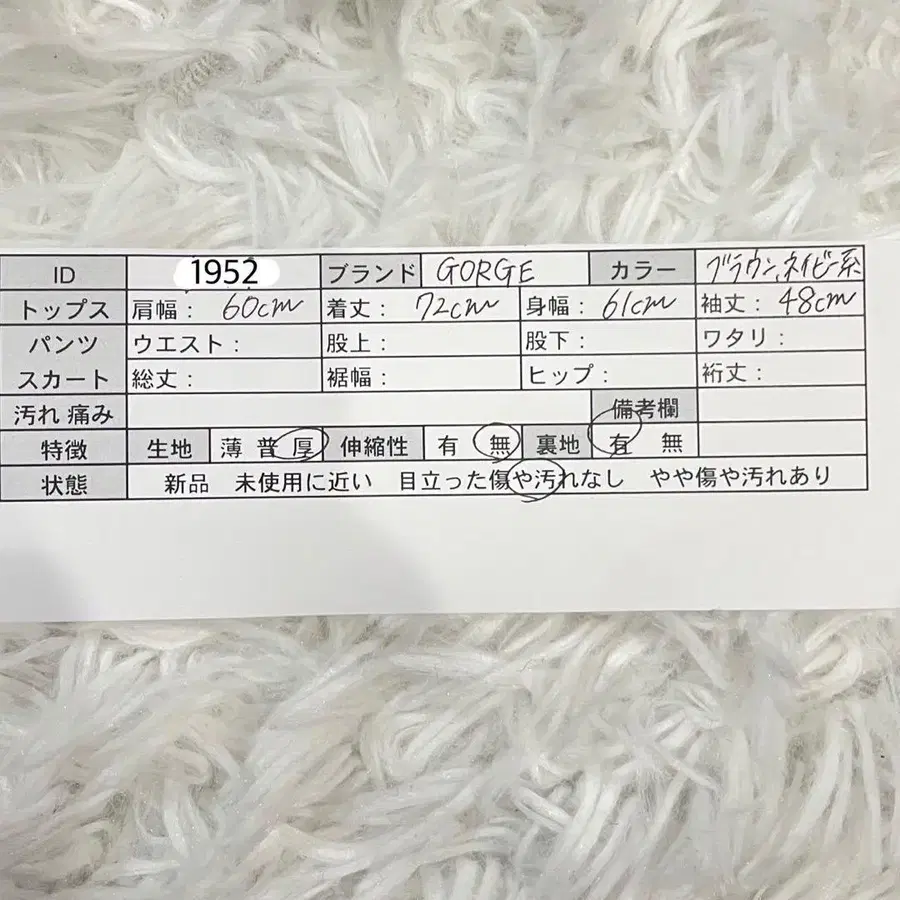 ID 1952 ブランド GORGE カラー ブラウン、ネイビー系
トップス 肩幅： 60cm 着丈： 72cm 身幅： 61cm 袖丈： 48cm
パンツ ウエスト： 股上： 股下： ワタリ：
スカート 総丈： 裾幅： ヒップ： 裄丈：
汚れ 痛み 備考欄
特徴 生地 薄 普 厚 伸縮性 有 無 裏地 有 無
状態 新品 未使用に近い 目立った傷や汚れなし やや傷や汚れあり